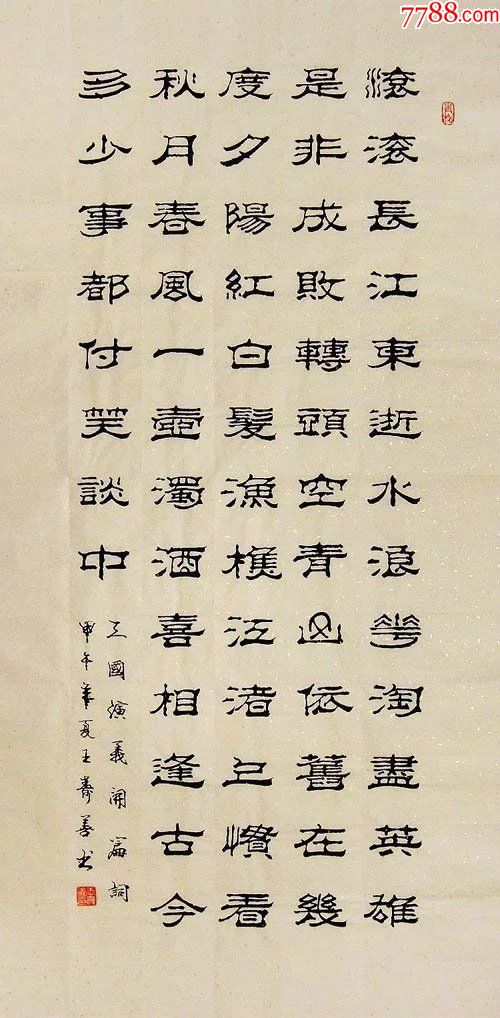 7788.com
滾滾長江東逝水浪花淘盡英雄
是非成敗轉頭空青山依舊在幾
度夕陽紅白髮漁樵江渚上慣看
秋月春風一壺濁酒喜相逢古今
多少事都付笑談中
三國演義開篇詞
甲午年夏王壽善書